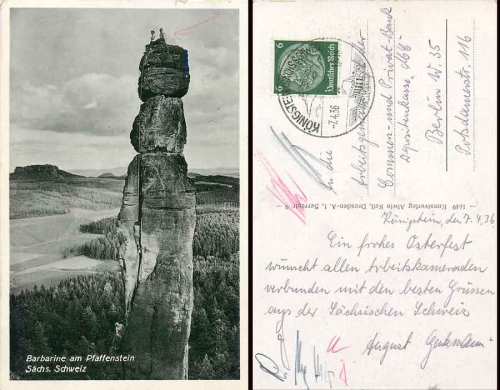 Barbarine am Pfaffenstein
Sächs. Schweiz
6
Deutsches Reich
KÖNIGSTEIN
-7.4.36
An die
Arbeitsgemeinschaft der
Commerz- und Privat-Bank
Depositenkasse
Berlin W. 35
Potsdamerstr. 116
Kunstverlag Alwin Keil, Dresden-A. 1, Serrestr. 9
Königstein, den 7.4.36
Ein frohes Osterfest
wünscht allen Arbeitskameraden
verbunden mit den besten Grüssen
aus der Sächsischen Schweiz
August